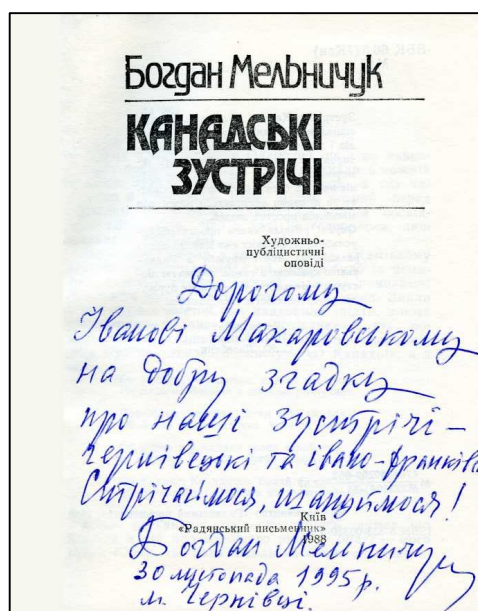 Богдан Мельничук
КАНАДСЬКІ
ЗУСТРІЧІ
Художньо-
публіцистичні
оповіді
Дорогому
Іванові Макаровському
на добру згадку
про наші зустрічі –
чернівецькі та івано-франків
Стрічаймося, шануймося!
Київ
«Радянський письменник»
1988
Богдан Мельничук
30 листопада 1995 р.
м. Чернівці.